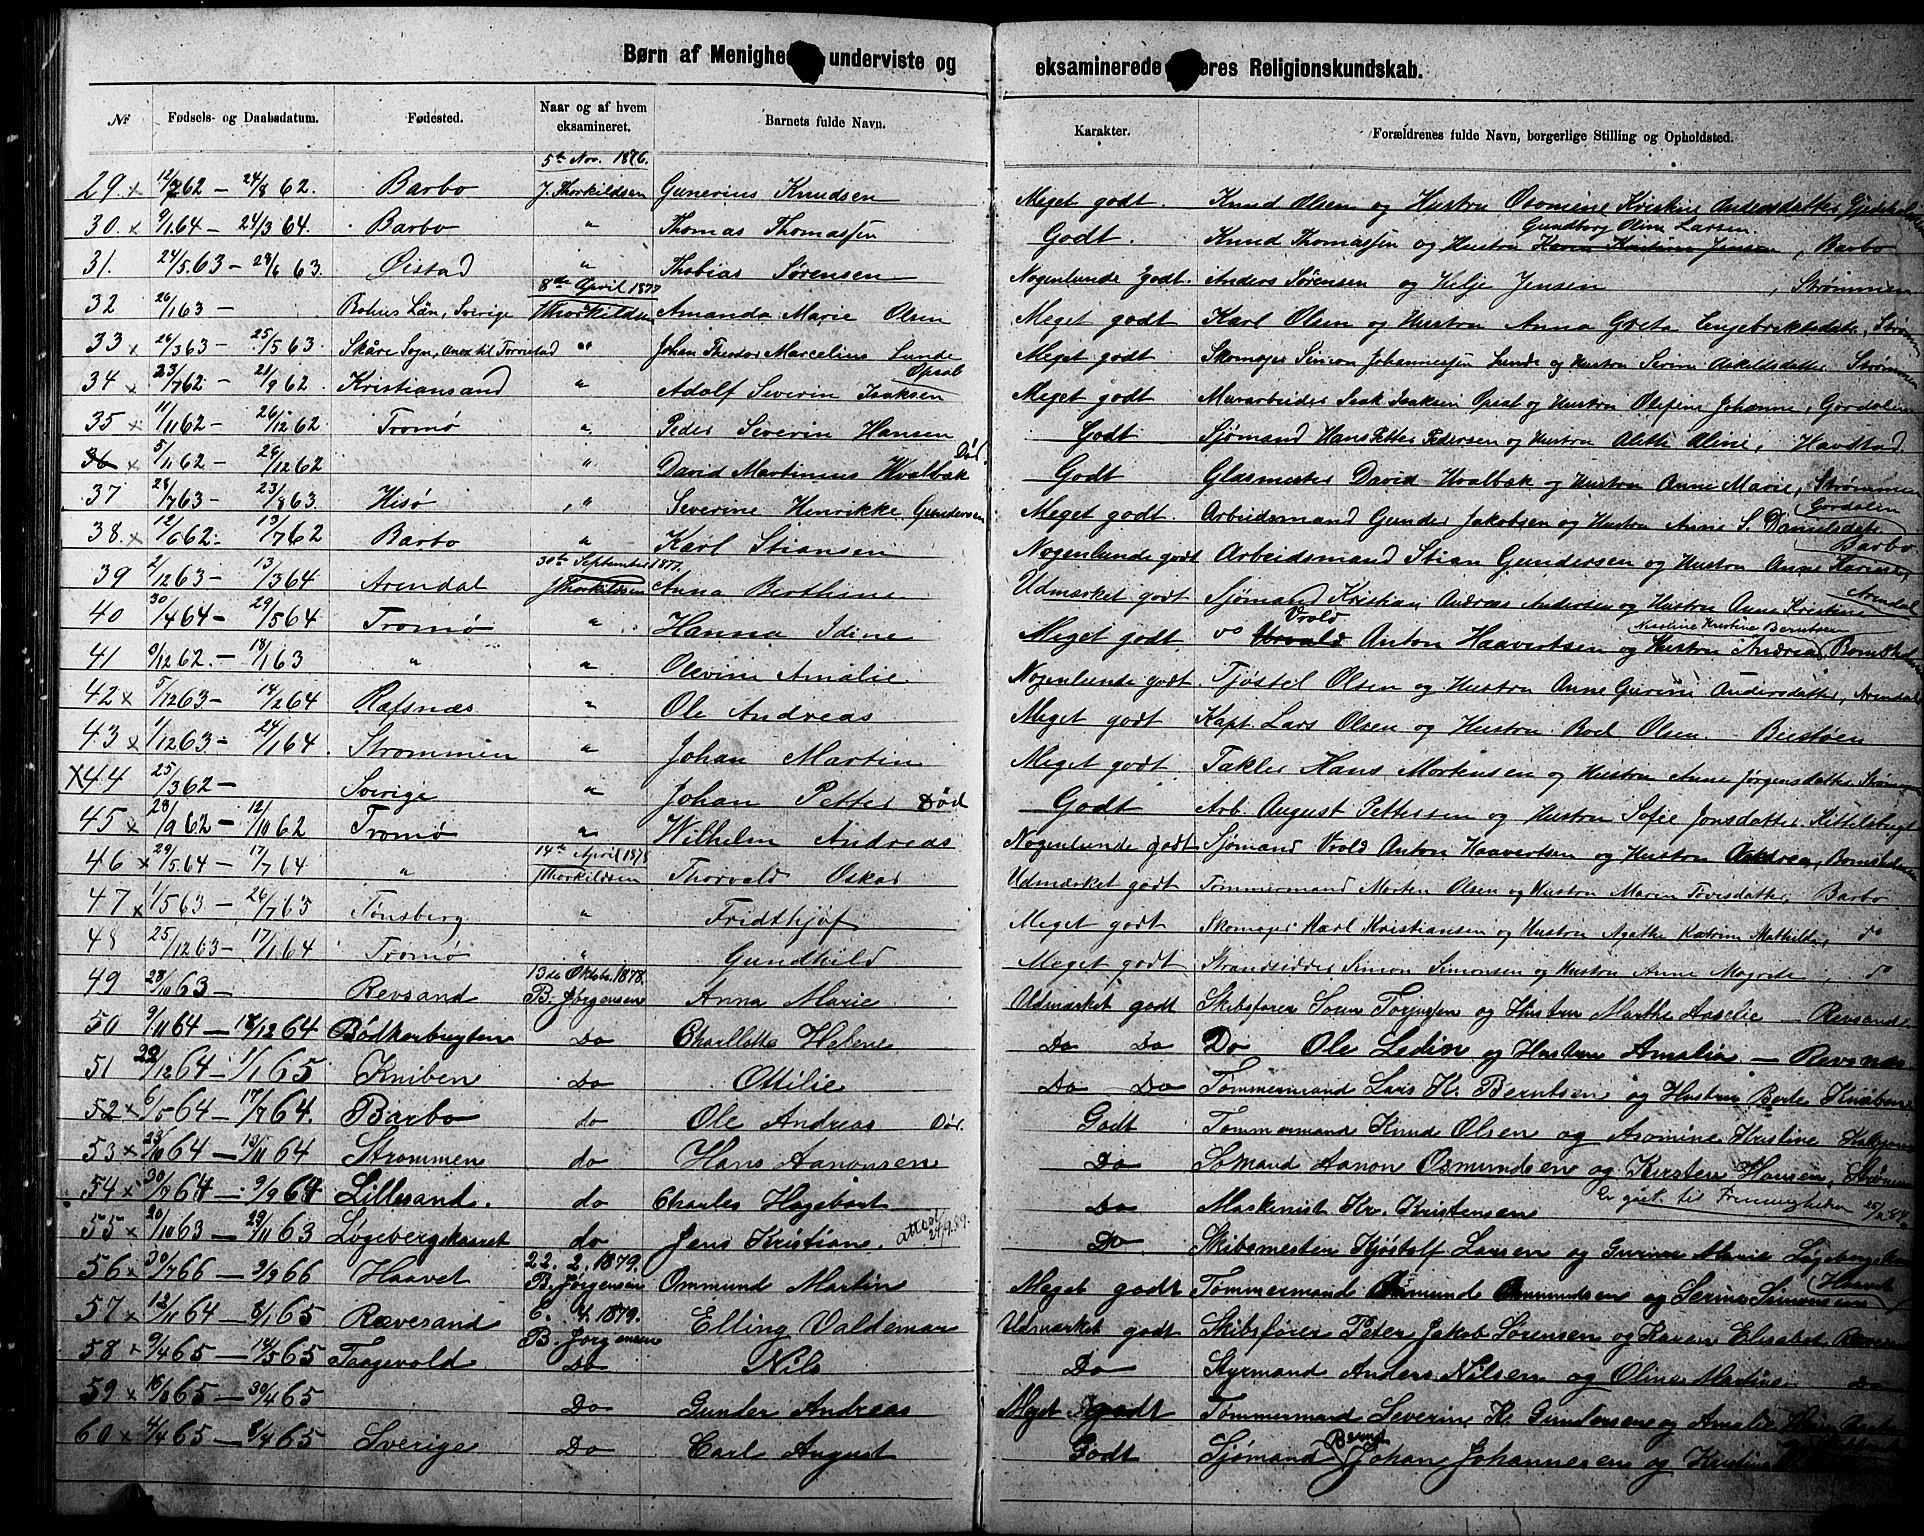 Børn af Menighe underviste og eksaminerede eres Religionskundskab.
№ Fødsels- og Daabsdatum. Fødested. Naar og af hvem eksamineret. Barnets fulde Navn. Karakter. Forældrenes fulde Navn, borgerlige Stilling og Opholdsted.
5te Nov. 1876.
29. x 12/7 62 – 24/8 62. Barbo J. Thorkildsen Gunerius Knudsen Meget godt. Knud Olsen og Hustru Osomine Kristine Andersdatter
Gundborg Oline Larsen
30. x 9/1 64 – 24/3 64. Barbo " Thomas Thomassen Godt. Knud Thomassen og Hustru Karen Kristine Jensen, Barbo
31. 24/5 63 – 28/6 63. Øistad " Thobias Sørensen Nogenlunde godt. Anders Sørensen og Helje Jensen, Strømmen
8de April 1877
32 26/1 63 – Bohus Län, Sverige J Thorkildsen Amanda Marie Olsen Meget godt Karl Olsen og Hustru Anna Greta Engebrektsdatter, Strømmen
33 x 26/3 63 – 25/5 63. Skåre Sogn, Anex til Torvestad " Johan Theodor Marcelius Lunde Meget godt Skomager Simon Johannessen Lunde og Hustru Serine Askildsdatter Strømmen
34 x 23/7 62 – 21/9 62. Kristiansand " Adolf Severin Isaksen Opsal Meget godt Murarbeider Isak Isaksen Opsal og Hustru Olefine Johanne, Gordalen
35 x 11/11 62 – 26/12 62. Tromø " Peder Severin Hansen Godt Sjømand Hans Petter Pedersen og Hustru Alette Oline, Havstad
36 x 5/11 62 – 26/12 62 " David Martinius Hvalbæk Død. Godt Glasmester David Hvalbæk og Hustru Anne Marie, Strømmen
37 28/7 63 – 23/8 63. Hisø " Severine Henrikke Gundersen Meget godt. Arbeidsmand Gunder Jakobsen og Hustru Anne S. Danielsdatter Gordalen
38. x 12/6 62. – 13/7 62 Barbo " Karl Stiansen Nogenlunde godt Arbeidsmand Stian Gundersen og Hustru Anne Karine, Barbo
30te September 1877.
39 2/12 63 – 13/3 64 Arendal J Thorkildsen Anna Berthine Udmærket godt Sjømand Kristian Andreas Andersen og Hustru Anne Kristine Arendal
40 30/4 64 – 29/5 64 Tromø " Hanna Idine Meget godt do Vrold Anton Haavertsen og Hustru Andrea Nicoline Kristine Berntsen
41 9/12 62. – 18/1 63 " " Olevine Amalie. Nogenlunde godt. Tjøstel Olsen og Hustru Anne Gurine Andersdatter, Arendal
42 x 5/12 63 – 14/2 64 Refsnæs " Ole Andreas Meget godt Kapt. Lars Olsen og Hustru Boel Olsen
43 x 1/12 63 – 24/1 64. Strømmen " Johan Martin Meget godt Takler Hans Mortensen og Hustru Anne Jørgensdatter Strømmen
x 44 25/3 62 – Sverige " Johan Petter Død Godt Arb. August Pettersen og Hustru Sofie Jonsdatter. Kittelsbugt
45 x 28/9 62 – 12/10 62 Tromø " Wilhelm Andreas Nogenlunde godt Sjømand Vrold Anton Haavertsen og Hustru Andrea,
14te April 1878
46 x 29/5 64 – 17/7 64 " J Thorkildsen Thorvald Oskar Udmærket godt Tømmermand Morten Olsen og Hustru Maren Tovisdatter, Barbo
47 x 1/5 63 – 26/7 63 Tønsberg " Fridthjof Meget godt Skomager Karl Kristiansen og Hustru Agathe Katrine Mathilde, do
48 25/12 63 – 17/1 64 Tromø " Gundhild Meget godt Strandsidder Simon Simonsen og Hustru Anne Magrete, do
13de Oktober 1878.
49 28/10 63 Revsand B. Jørgensen Anna Marie Udmærket godt Skibsfører Søren Torjusen og Hustru Marthe Aaselie – Revsand
50 9/11 64 – 18/12 64 Bödkerbugten Do Charllotte Helene Do Do Do Ole Ledin og Hustru Amalia – Revsand
51 22/12 64 – 1/1 65 Kniben Do Ottilie Do Do Tømmermand Lars Kr. Berntsen og Hustru Berte Kniben
52 x 6/5 64 – 17/7 64. Barbo do Ole Andreas Død. Godt Tømmermand Knud Olsen og Asomine Kristine
53 x 23/10 64 – 13/11 64 Strømmen do Hans Aanonsen Do Sømand Aanon Osmundsen og Kirsten Hansen, Strømmen
54 x 30/7 64 – 9/9 64 Lillesand. do Charles Hagebart Do Maskinist Kr. Kristensen Er gået til Frimenigheden 25/2 84.
55 x 20/10 63 – 29/11 63 Løgebergskaaret do Jens Kristian. attest 24/9.89. Do Skibsmesten Kjøstolf Larsen og Gurine Marie
56 x 30/7 66 – 9/9 66 Haavet 22. 2. 1879. B. Jørgensen Ommund Martin Meget godt Tømmermand Ommund Ommundsen og Serine Simonsen Haavet
57 x 12/11 64 – 8/1 65 Rævesand 6. 4. 1879. B. Jørgensen Elling Valdemar Udmærket godt Skibsfører Peter Jakob Sørensen og Karen Elisabet Rævesand
58 x 9/4 65 – 14/5 65 Taagevold Do Nils Do Styrmand Anders Nilsen og Oline Martine Do
59 x 16/3 65 – 30/4 65 Do Gunder Andreas Meget godt Tømmermand Severin Kr. Gundersen og Amalie
60 x 4/4 65 – 8/4 65 Sverige Do Carl August Godt Sjømand Bernt Johan Johannesen og Kristine